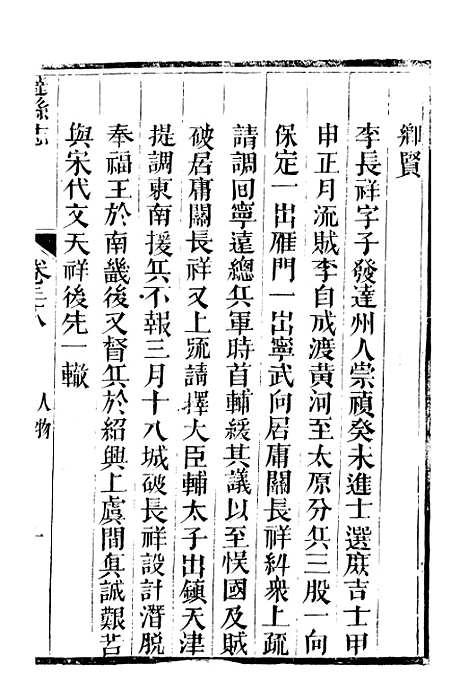 鄉賢
李長祥字子發達州人崇禎癸未進士選庶吉士甲
申正月流賊李自成渡黃河至太原分兵三股一向
保定一出雁門一出寧武向居庸關長祥糾衆上疏
請調回寧遠總兵軍時首輔緩其議以至悞國及賊
破居庸關長祥又上疏請擇大臣輔太子出鎮天津
提調東南援兵不報三月十八城破長祥設計潛脫
奉福王於南畿後又督兵於紹興上虞間眞誠艱苦
與宋代文天祥後先一轍
達縣志
卷三十八
人物
一